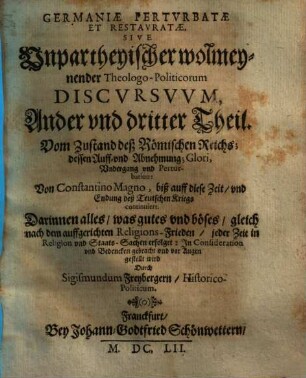 GERMANIÆ PERTVRBATÆ
ET RESTAVRATÆ,
SIVE
Vnpartheyischer wolmey-
nender Theologo-Politicorum
DISCVRSVVM,
Ander vnd dritter Theil.
Vom Zustand deß Römischen Reichs:
dessen Auff- vnd Abnehmung, Glori,
Vndergang vnd Pertur-
bation:
Von Constantino Magno, biß auff diese Zeit/ vnd
Endung deß Teutschen Kriegs
continuiert.
Darinnen alles/ was gutes vnd böses/ gleich
nach den auffgerichten Religions-Frieden/ jeder Zeit in
Religion vnd Staats-Sachen erfolget: In Consideration
vnd Bedencken gebracht vnd vor Augen
gestellt wird
Durch
Sigismundum Freybergern/ Historico-
Politicum.
Franckfurt/
Bey Johann Godtfried Schönwettern/
M. DC. LII.